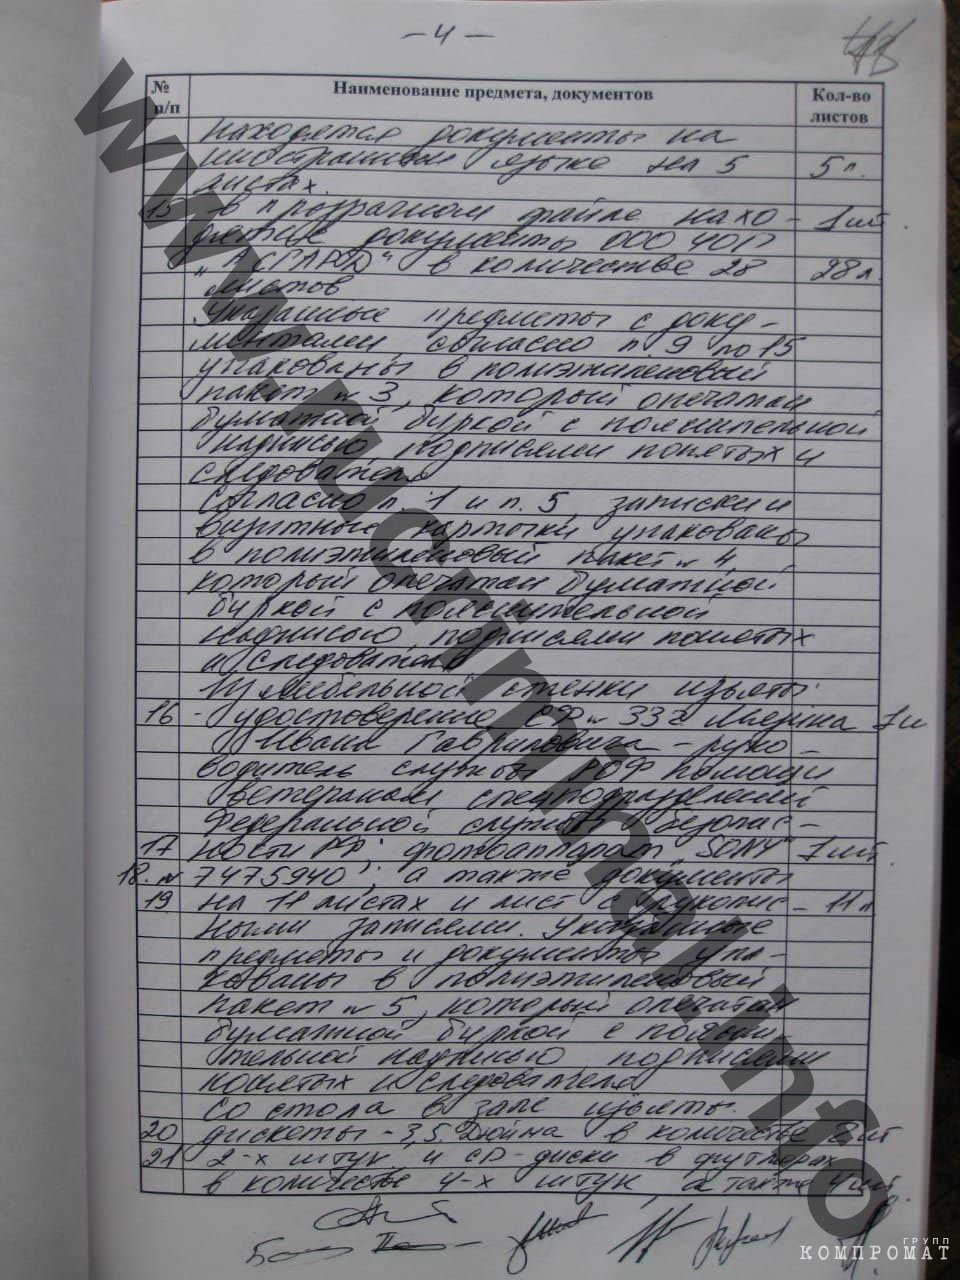 - 4 -
№ п/п
Наименование предмета, документов
Кол-во листов
находятся документы на
иностранном языке на 5 5 л.
листах.
15 - в прозрачном файле нахо- 1 шт.
дятся документы ООО ЧОП
"АСГАРД" в количестве 28 28 л.
листов
Указанные предметы с доку-
ментами согласно п. 9 по 15
упакованы в полиэтиленовый
пакет № 3, который опечатан
бумажной биркой с пояснительной
надписью, подписями понятых и
следователя
Согласно п. 1 и п. 5, записки и
визитные карточки упакованы
в полиэтиленовый пакет № 4
который опечатан бумажной
биркой с пояснительной
надписью подписями понятых
и следователя
Из мебельной стенки изъяты:
16 - удостоверение РОФ № 332
Ивана Гавриловича - руко-
водитель службы РОФ помощи
ветеранам спецподразделений
Федеральной службы безопас-
17 ности РФ; фотоаппарат "SONY" 1 шт.
18. № 7475940; а также документы
19 на 11 листах и лист с рукопис- 11 л
ными записями. Указанные
предметы и документы упа-
кованы в полиэтиленовый
пакет № 5, который опечатан
бумажной биркой с поясни-
тельной надписью подписями
понятых и следователя
Со стола в зале изъяты:
20 дискеты - 3,5 Дюйма в количестве 2 шт
21 2-х штук, и CD-диски в футлярах
в количестве 4-х штук, а также 4 шт.
www.rucriminal.info
ГРУПП
КОМПРОМАТ